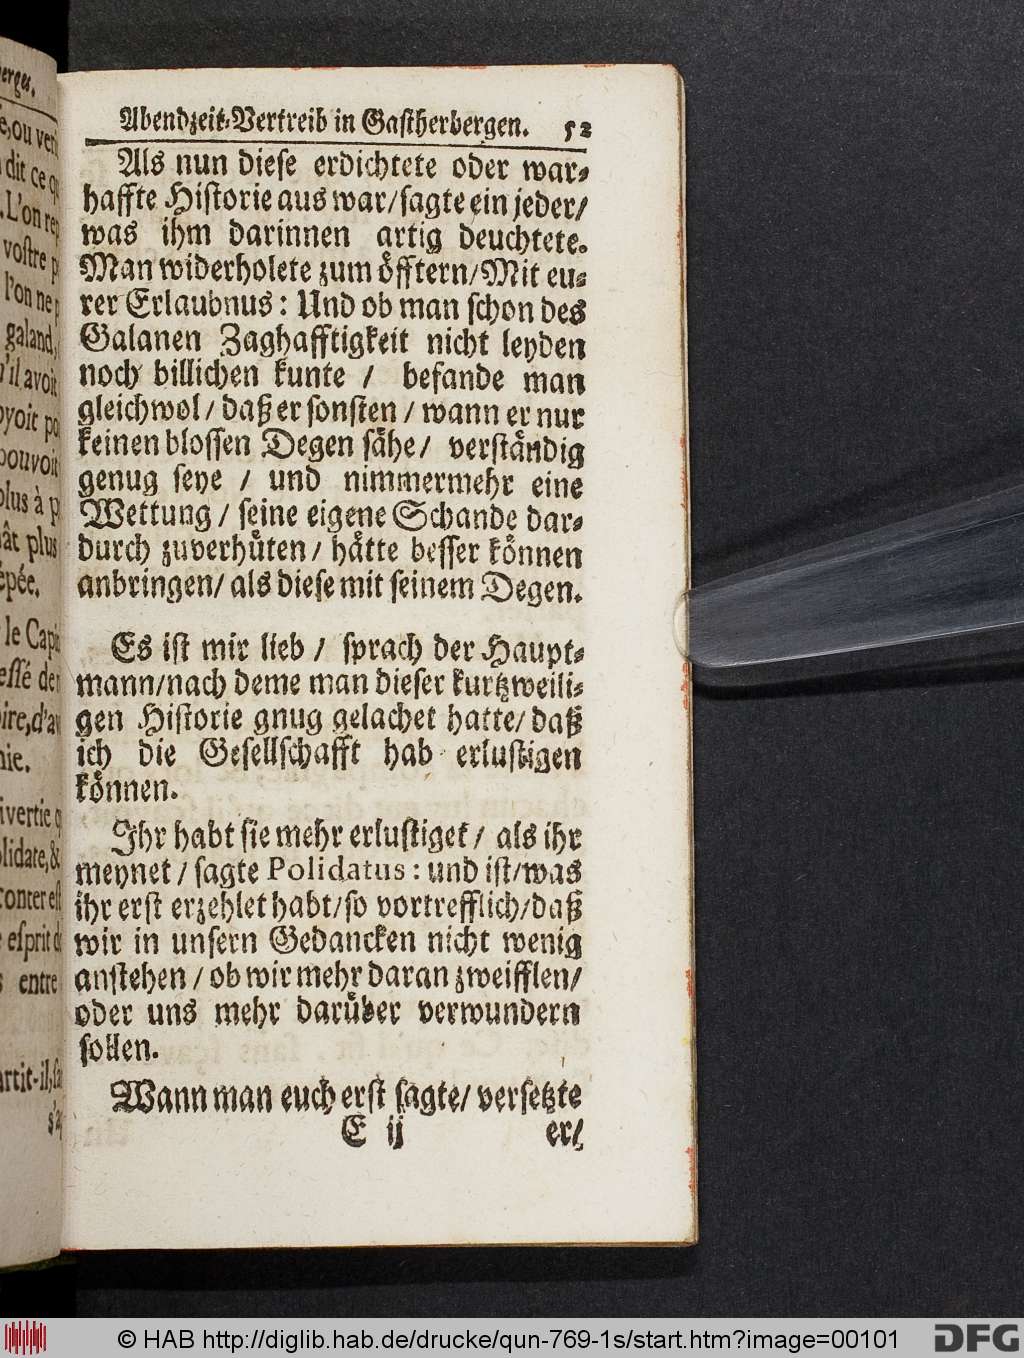 erges.
Abendzeit-Vertreib in Gastherbergen. 52
Als nun diese erdichtete oder war-
haffte Historie aus war/sagte ein jeder/
was ihm darinnen artig deuchtete.
Man widerholete zum öfftern/Mit eu-
rer Erlaubnus: Und ob man schon des
Galanen Zaghafftigkeit nicht leyden
noch billichen kunte / befande man
gleichwol / daß er sonsten / wann er nur
keinen blossen Degen sähe / verständig
genug seye / und nimmermehr eine
Wettung / seine eigene Schande dar-
durch zuverhüten / hätte besser können
anbringen/ als diese mit seinem Degen.
Es ist mir lieb / sprach der Haupt-
mann/nach deme man dieser kurtzweili-
gen Historie gnug gelachet hatte/ daß
ich die Gesellschafft hab erlustigen
können.
Ihr habt sie mehr erlustiget / als ihr
meynet / sagte Polidatus: und ist/was
ihr erst erzehlet habt/so vortrefflich/daß
wir in unsern Gedancken nicht wenig
anstehen / ob wir mehr daran zweifflen/
oder uns mehr darüber verwundern
sollen.
Wann man euch erst sagte/ versetzte
E ij er/
© HAB http://diglib.hab.de/drucke/qun-769-1s/start.htm?image=00101
DFG